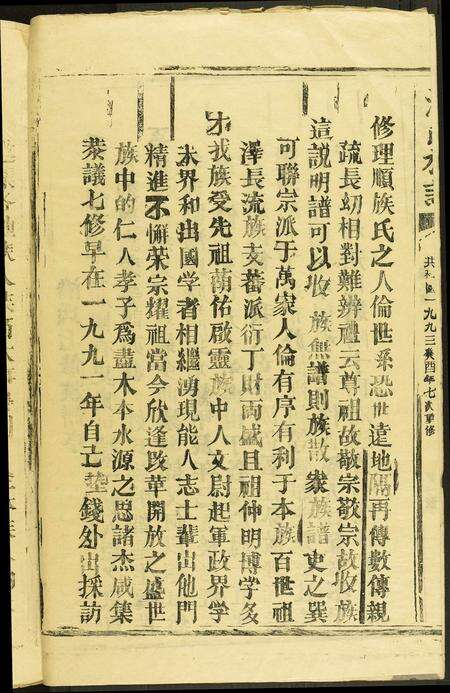 修理順族氏之人倫世系恐世遠地隔再傳數傳親
疏長幼相對難辨禮云尊祖故敬宗敬宗故收族
這説明譜可以收族無譜則族散家族譜史之巽
可聯宗派于萬家人倫有序有利于本族百世祖
澤長流族支蕃派衍丁財两盛且祖仲明博学多
才我族受先祖荫佑啟靈族中人文尉起軍政界学
术界和出國学者相繼湧現能人志士輩出他門
精進不懈荣宗耀祖當今欣逢改革開放之盛世
族中的仁人孝子為盡木本水源之思諸杰咸集
恭議七修早在一九九一年自亡墊錢外出採訪
一九九三癸酉年七